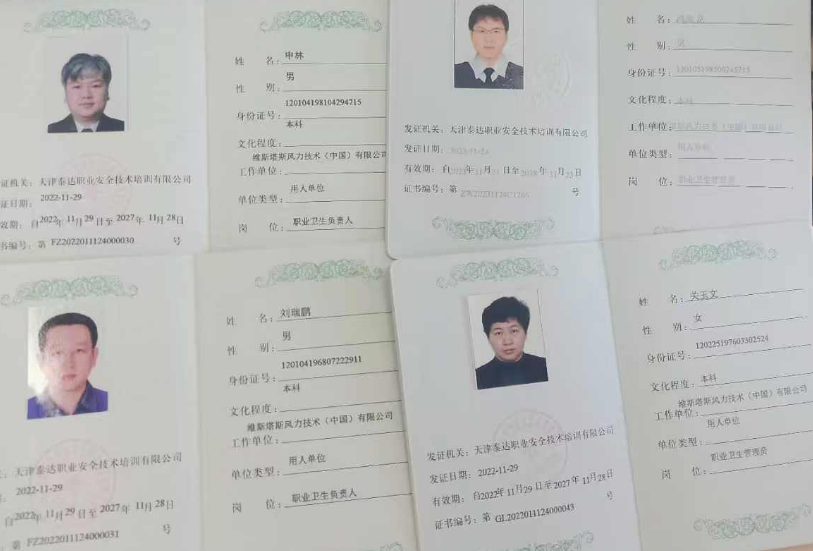 证机关：天津泰达职业安全技术培训有限公司
证日期：2022-11-29
效期：自2022年 11月29日至 2027年 11月 28日
书编号：第 FZ2022011124000030 号
姓 名：申林
性 别：男
身份证号：120104198104294715
文化程度：本科
工作单位：维斯塔斯风力技术（中国）有限公司
单位类型：用人单位
岗 位：职业卫生负责人
发证机关：天津泰达职业安全技术培训有限公司
发证日期：
有效期：自
证书编号：第 号
姓 名：
性 别：
身份证号：
文化程度：本科
工作单位：
单位类型：用人单位
岗 位：职业卫生管理员
天津泰达职业安全技术培训有限公司
2022-11-29
自2022年 11月29日至 2027年 11月 28日
第 FZ2022011124000031 号
姓 名：刘瑞鹏
性 别：男
身份证号：120104196807222911
文化程度：本科
工作单位：维斯塔斯风力技术（中国）有限公司
单位类型：用人单位
岗 位：职业卫生负责人
发证机关：天津泰达职业安全技术培训有限公司
发证日期：2022-11-29
有效期：自2022年 11月29日至 2027年 11月28日
证书编号：第 GL2022011124000043 号
姓 名：关玉文
性 别：女
身份证号：120225197603302524
文化程度：本科
工作单位：维斯塔斯风力技术（中国）有限公司
单位类型：用人单位
岗 位：职业卫生管理员